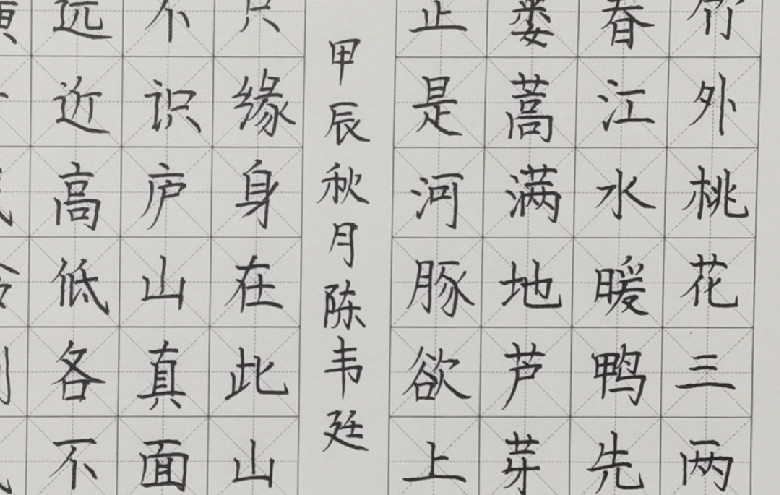 竹外桃花三两
春江水暖鸭先
蒌蒿满地芦芽
正是河豚欲上
甲辰秋月陈韦廷
只缘身在此山
不识庐山真面
远近高低各不